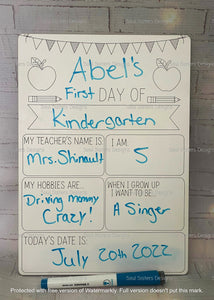 Soul Sisters Designs
Abel's
First DAY OF
Kindergarten
MY TEACHER'S NAME IS:
Mrs. Shinault
I AM:
5
MY HOBBIES ARE...
Driving Mommy
Crazy!
WHEN I GROW UP
I WANT TO BE...
A Singer
TODAY'S DATE IS:
July 20th 2022
Protected with free version of Watermarkly. Full version doesn't put this mark.